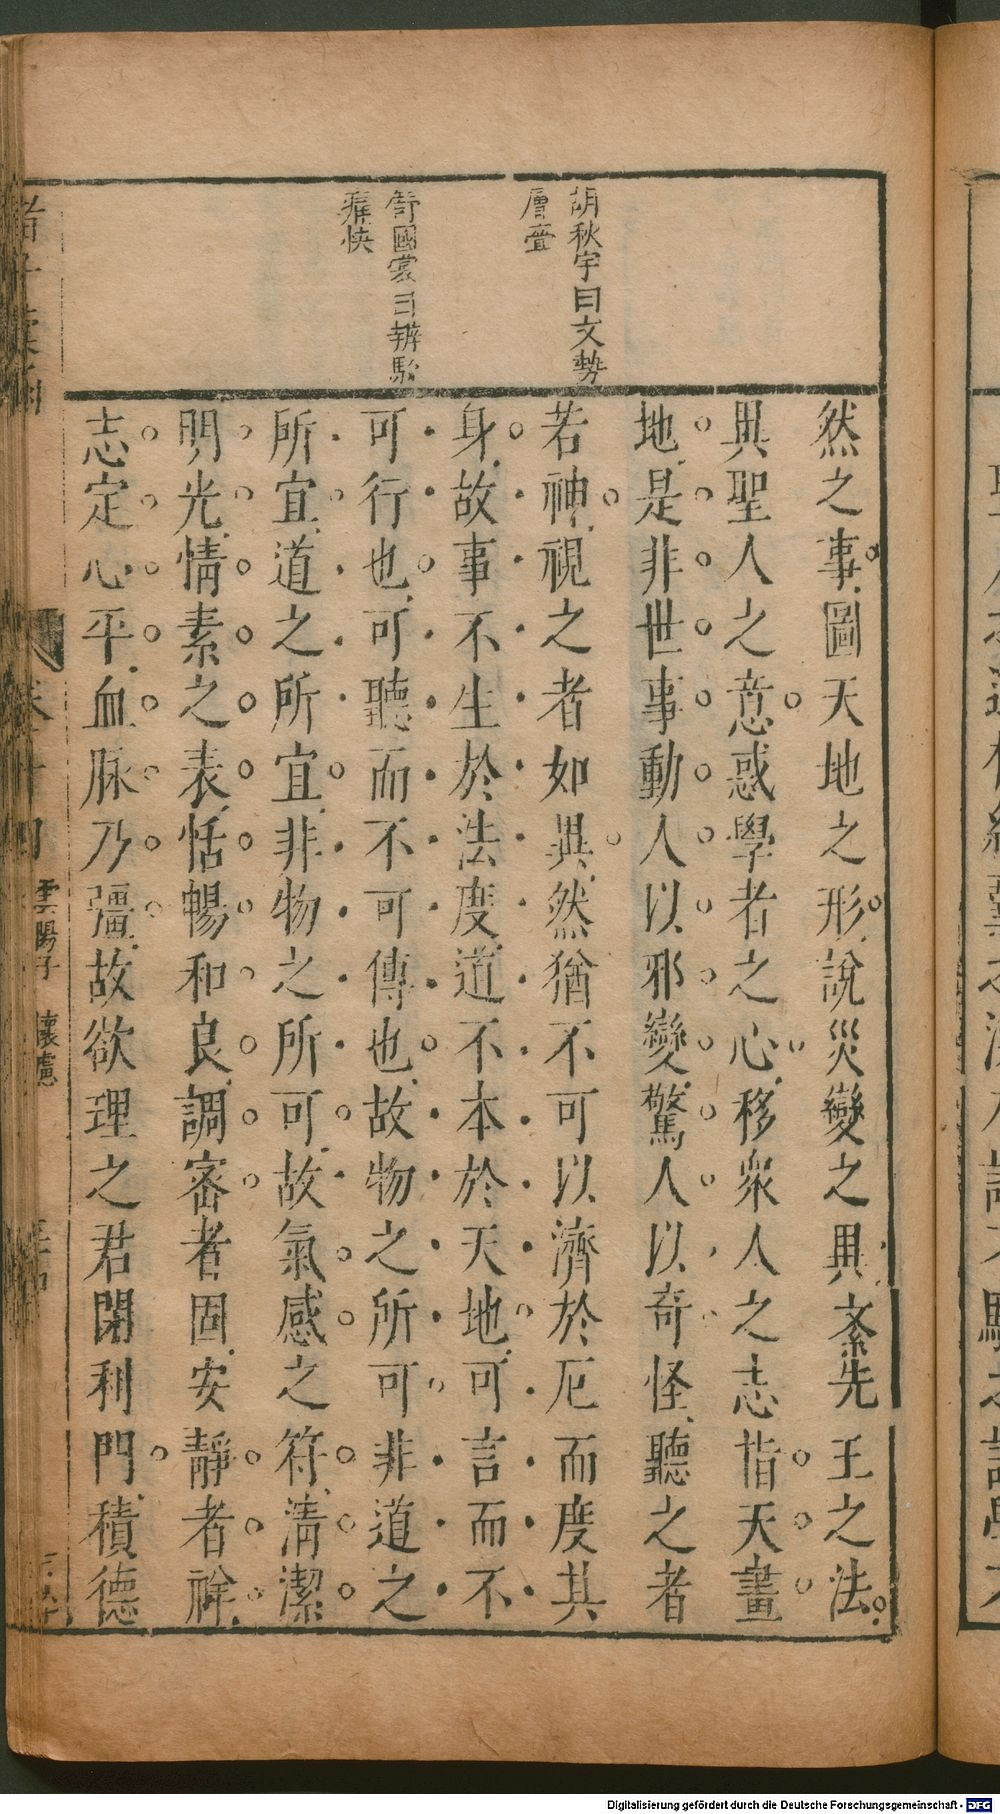 胡秋宇曰文勢
層疊
舒國裳曰辨駁
痛快
然之事圖天地之形說災變之異紊先王之法
異聖人之意惑學者之心移衆人之志指天畫
地是非世事動人以邪變驚人以奇怪聽之者
若神視之者如異然猶不可以濟於厄而度其
身故事不生於法度道不本於天地可言而不
可行也可聽而不可傳也故物之所可非道之
所宜道之所宜非物之所可故氣感之符清潔
明光情素之表恬暢和良調密者固安靜者祥
志定心平血脉乃彊故欲理之君閑利門積德
雲陽子 懷慮
Digitalisierung gefördert durch die Deutsche Forschungsgemeinschaft - DFG